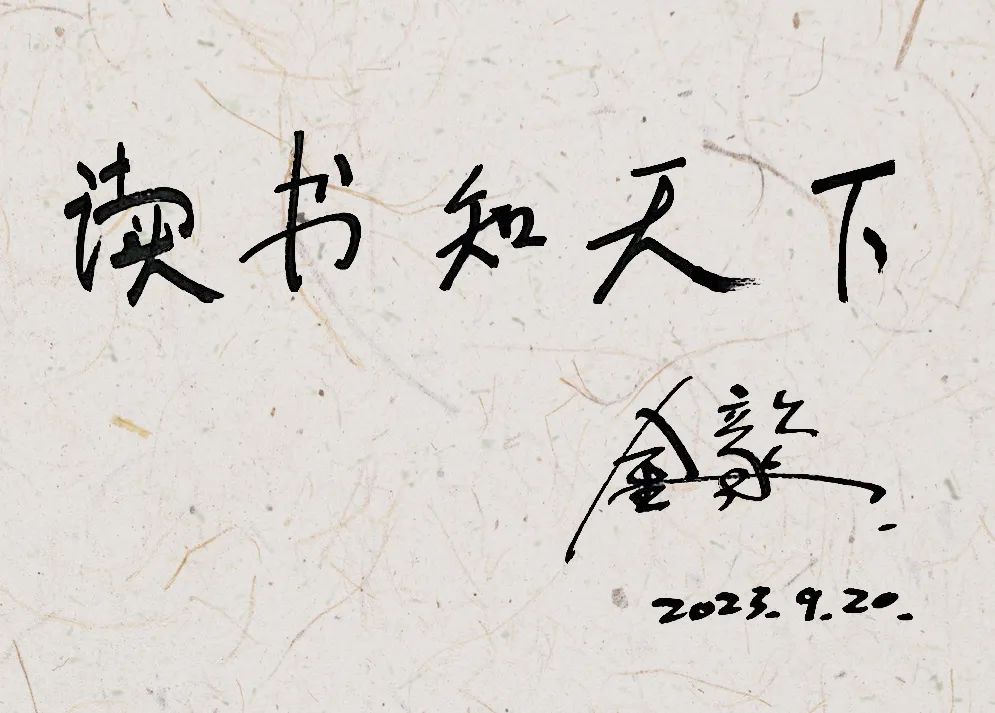 读书知天下
金毅
2023.9.20.